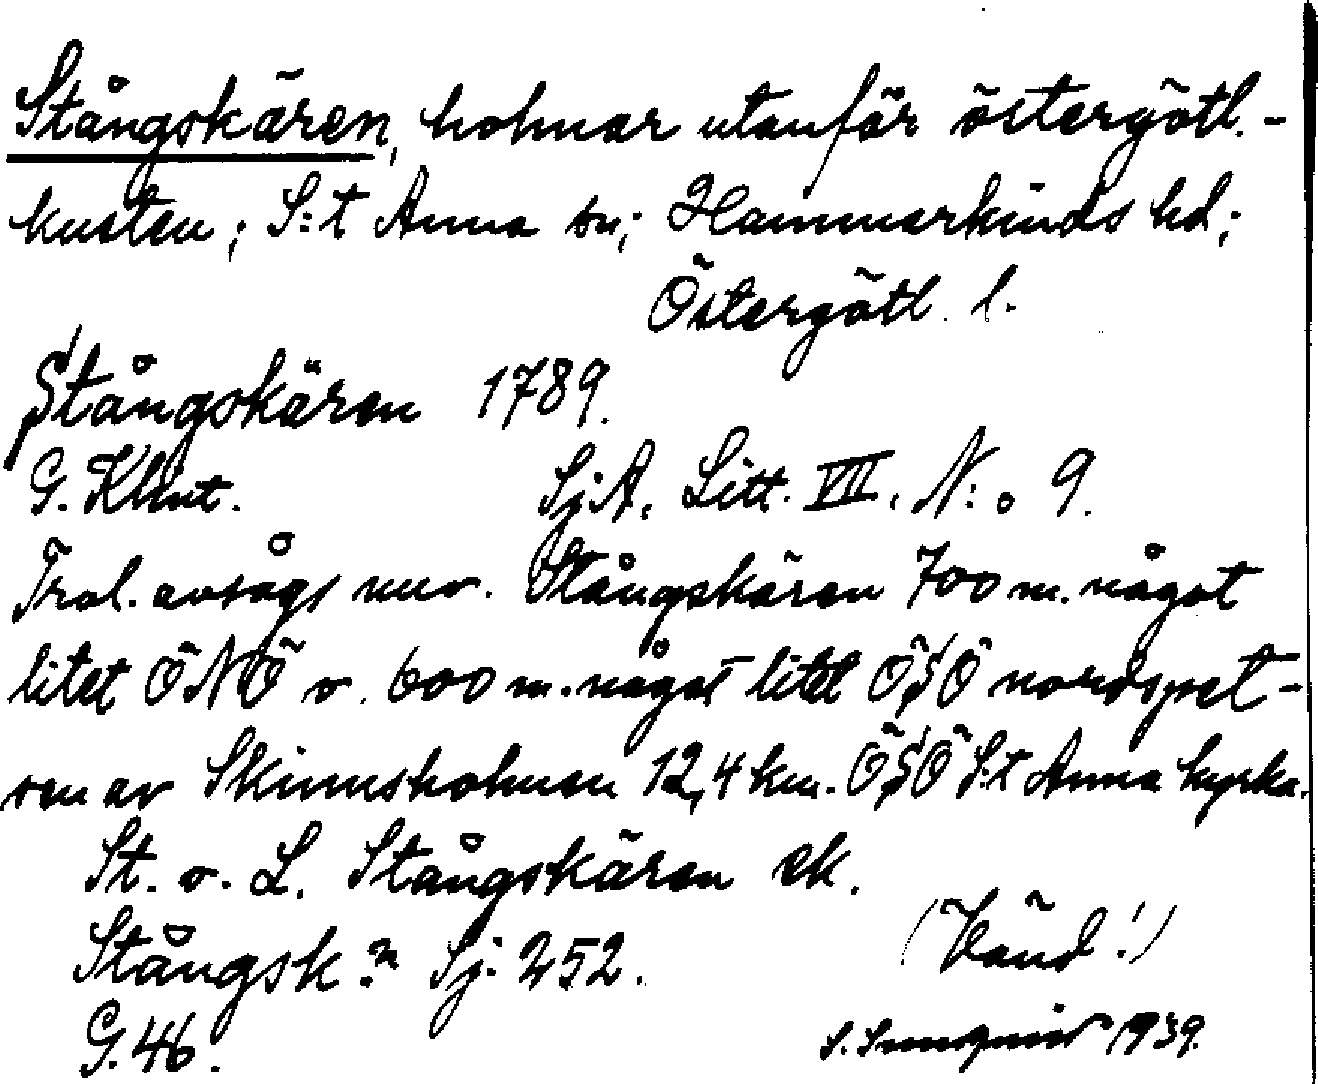 Stångskären, holmar utanför östergötl.-
kusten; S:t Anna sn; Hammarkinds hd;
Östergötl. l.
Stångskären 1789.
G. Klint. SjA. Litt. VII. N:o 9.
Trol. avsågs nuv. Stångskären 700 m. något
litet ÖNÖ o. 600 m. något litet ÖSÖ nordspet-
sen av Skinnsholmen 12,4 km. ÖSÖ S:t Anna kyrka.
St. o. L. Stångskären ek.
Stångsk:n Sj. 252.
(Vänd!)
G. 46. S. 1939.